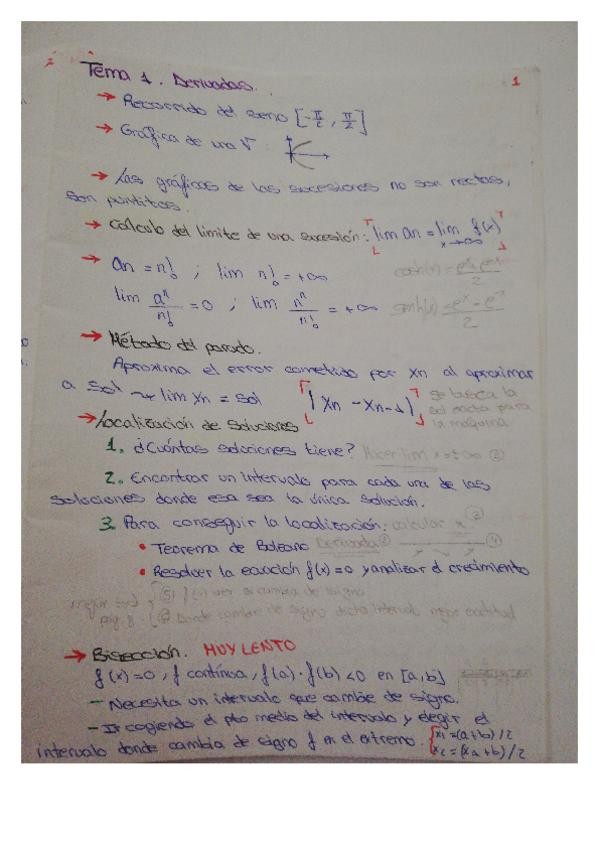 Tema 1. Derivadas.
1
→ Recorrido del seno [-π/2, π/2]
→ Gráfica de una √
→ Las gráficas de las sucesiones no son rectas,
son puntitos.
→ Cálculo del límite de una sucesión: lim an = lim x→∞ f(x)
→ an = n! ; lim n! = +∞
cosh(x) = 
lim aⁿ/n! = 0 ; lim nⁿ/n! = +∞
senh(x) = eˣ - e⁻ˣ / 2
→ Método del parado.
Aproxima el error cometido por Xn al aproximar
a sol ⤳ lim Xn = sol |Xn - Xn-1|
se busca la
sol exacta para
la máquina
→ Localización de soluciones
1. ¿Cuántas soluciones tiene? Hacer lim x→±∞ ②
2. Encontrar un intervalo para cada una de las
soluciones donde esa sea la única solución.
3. Para conseguir la localización: calcular
• Teorema de Bolzano Derivada
• Resolver la ecuación f(x)=0 y analizar el crecimiento
ver si cambia de signo
pág. 8 Donde cambie de signo dicho intervalo
→ Bisección. MUY LENTO
f(x)=0, f continua, f(a)·f(b)<0 en [a,b]
- Necesita un intervalo que cambie de signo.
- Ir cogiendo el pto medio del intervalo y elegir el
intervalo donde cambia de signo f en el extremo. { x1 = (a+b)/2
x2 = (xa+b)/2